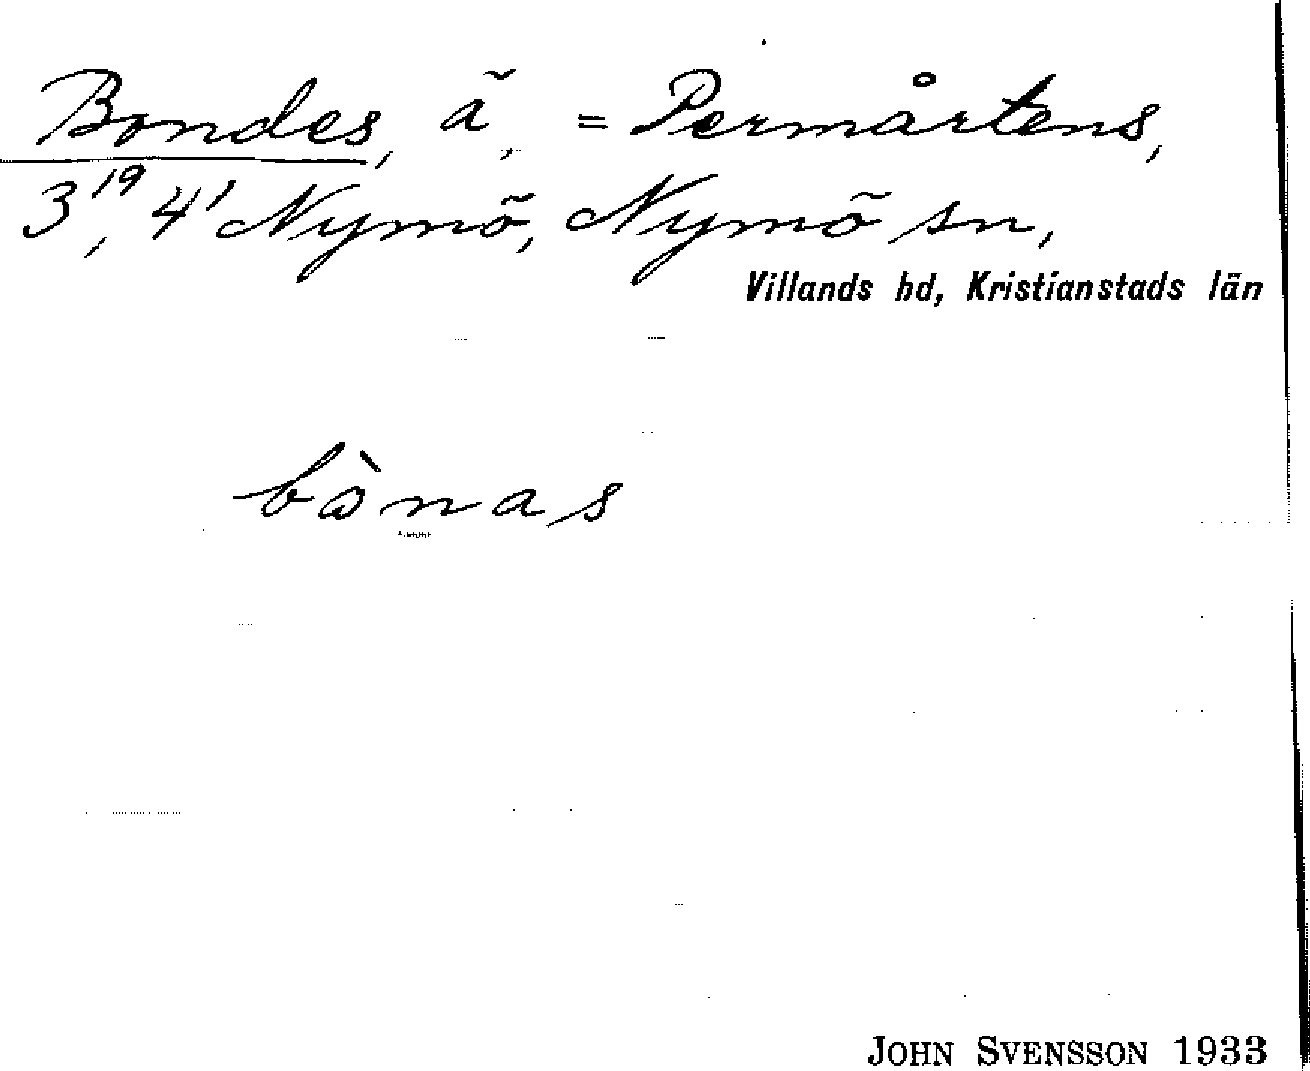 Bondes, ä, = Permårtens,
3¹⁹, 4¹ Nymö, Nymö sn,
Villands hd, Kristianstads län
bànas
JOHN SVENSSON 1933